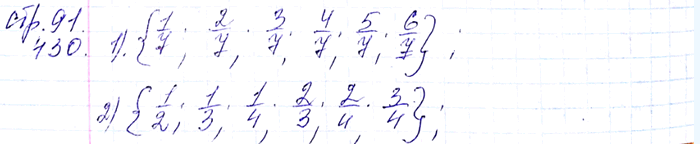 стр. 91.
430. 1). {1/7; 2/7; 3/7; 4/7; 5/7; 6/7};
2) {1/2; 1/3; 1/4; 2/3; 2/4; 3/4};